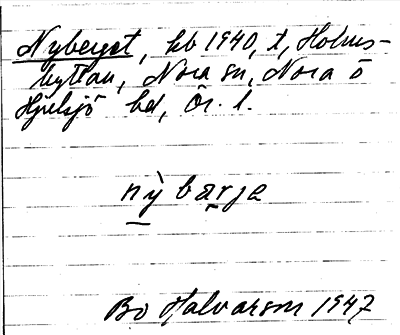 Nyberget, kb 1940, t, Holms-
hyttan, Nora sn, Nora o
Hjulsjö bd, Ör. l.
nỳ barja
Bo Halvarson 1947